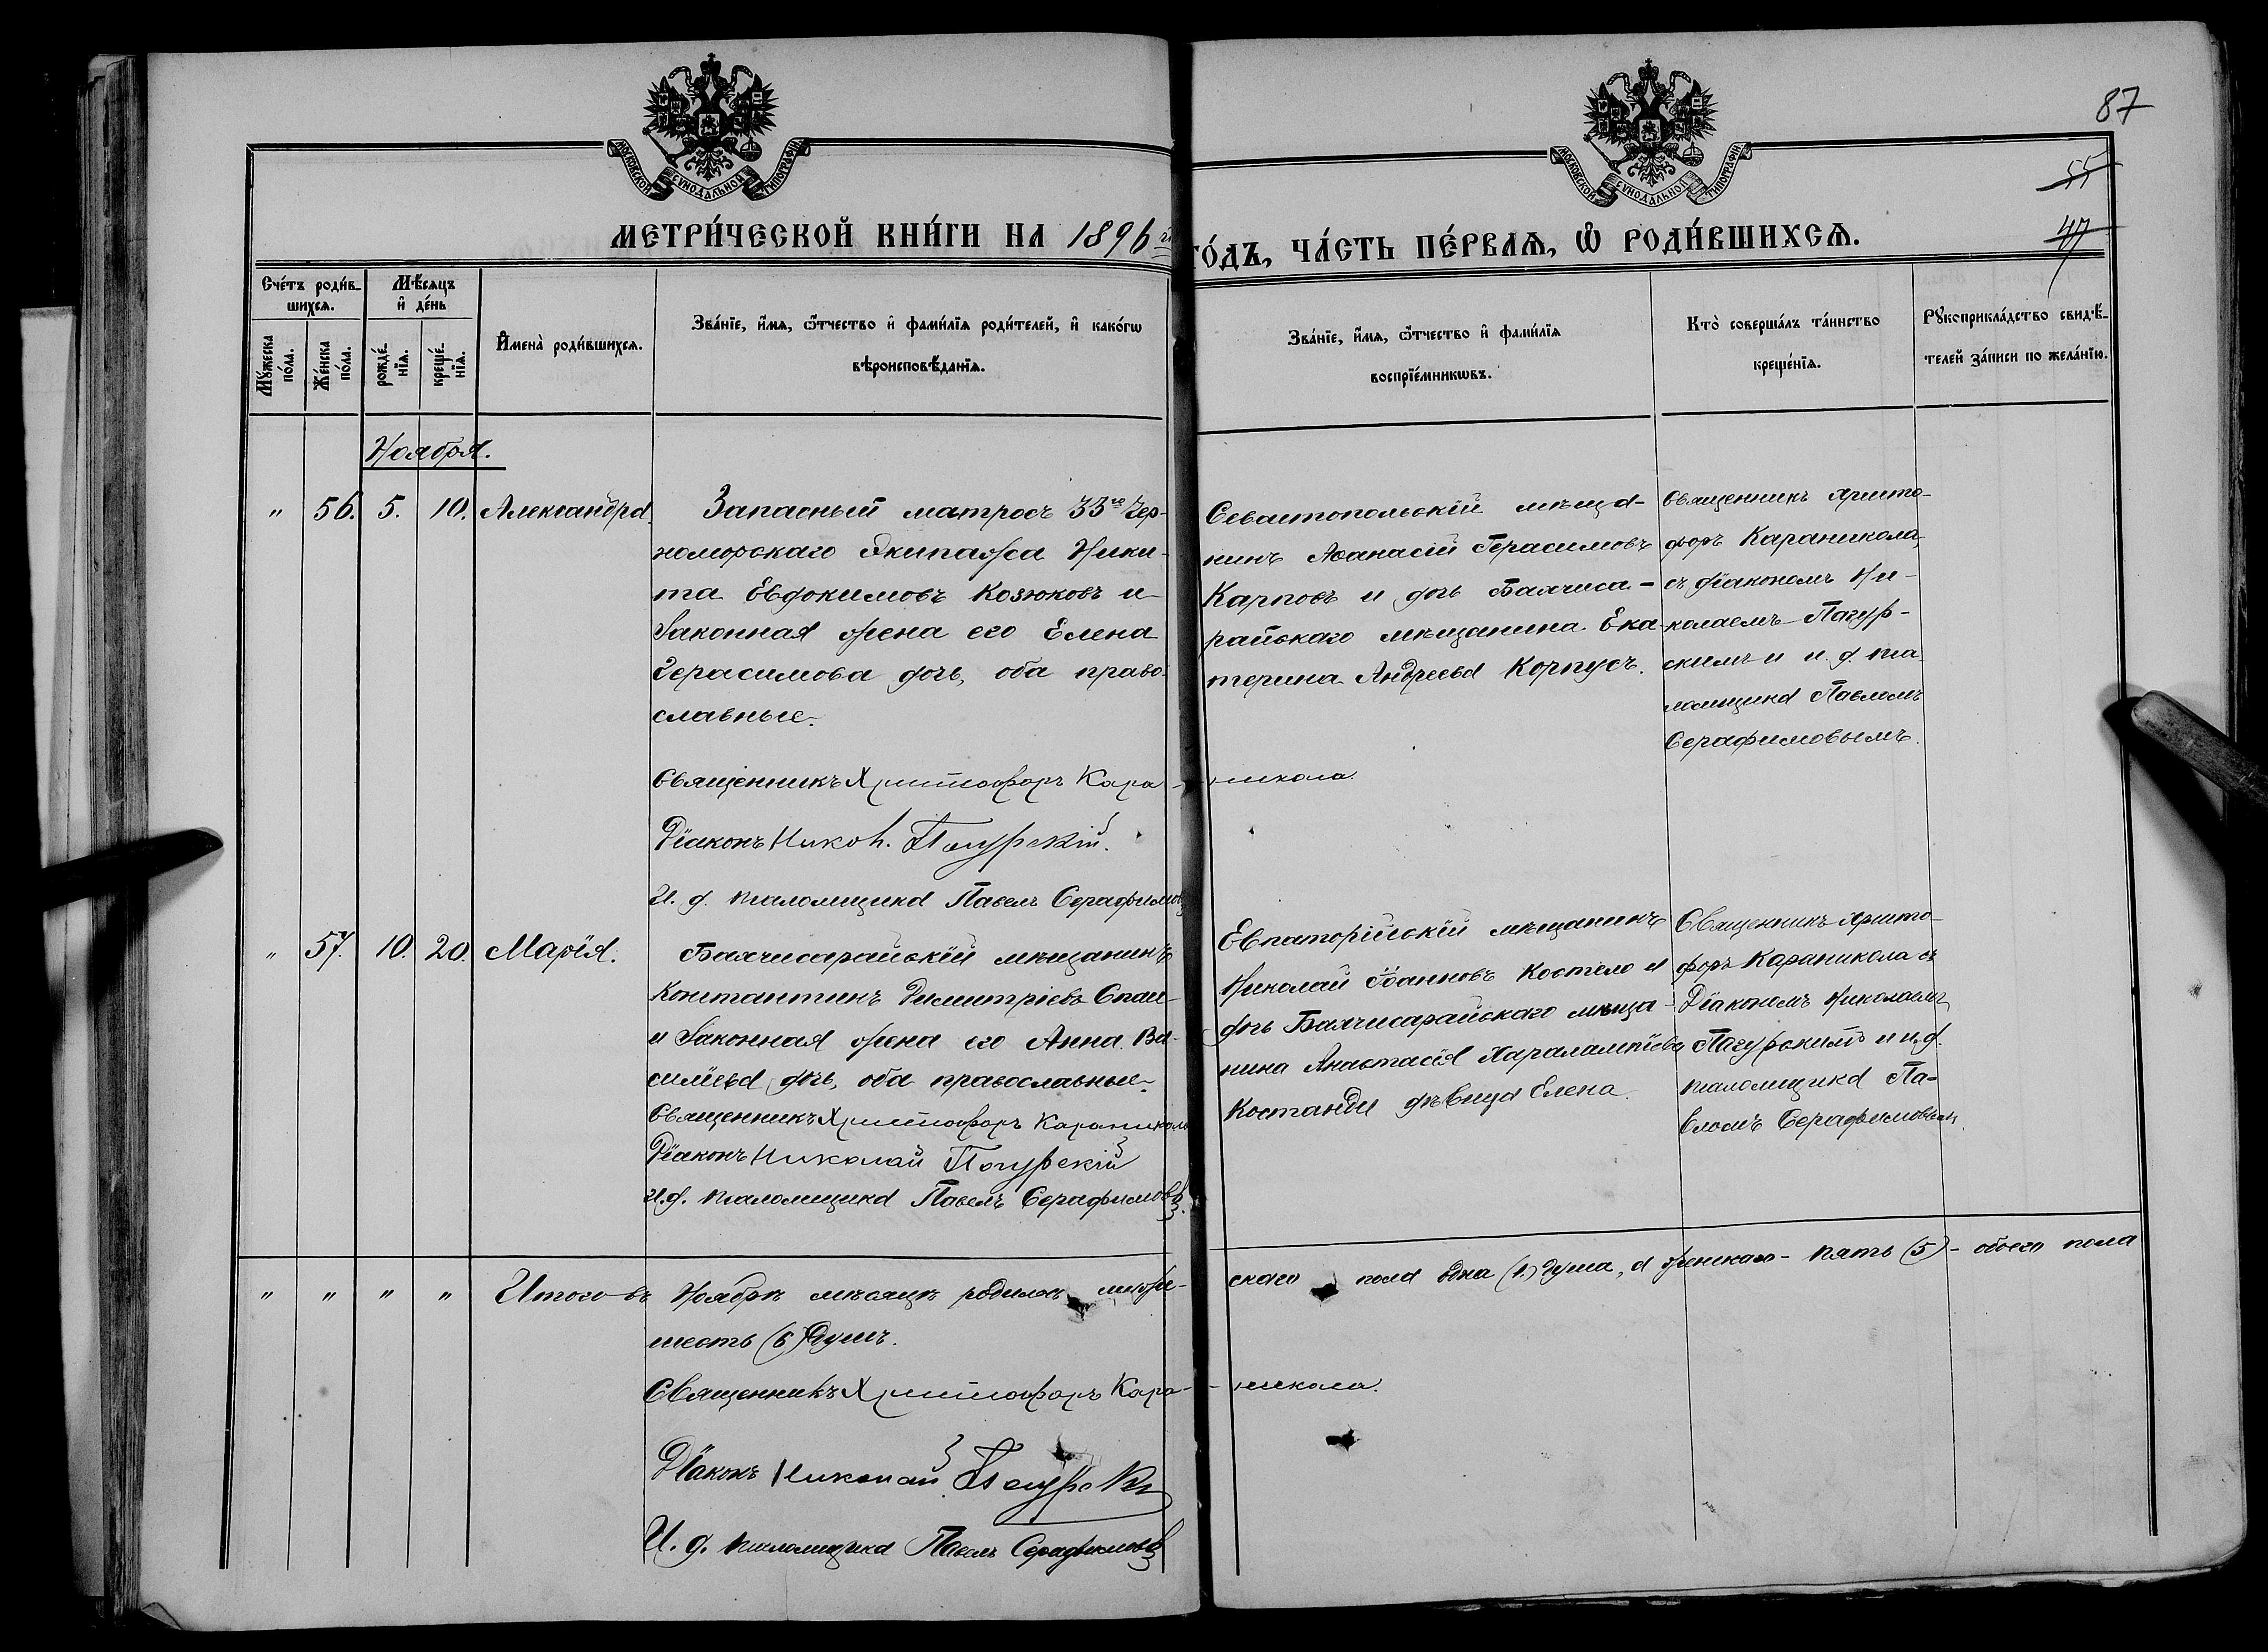 87
55
47
МОСКОВСКОЙ СѴНОДАЛЬНОЙ ТИПОГРАФІИ
МОСКОВСКОЙ СѴНОДАЛЬНОЙ ТИПОГРАФІИ
МЕТРИ́ЧЕСКОЙ КНИ́ГИ НА 1896 й
ГО́ДЪ, ЧА́СТЬ ПЕ́РВАѦ, Ѽ РОДИ́ВШИХСѦ.
Сче́тъ роди́в-
шихсѧ.
Мѣ́сѧцъ
и҆ де́нь
Мꙋ́жеска по́ла.
Же́нска по́ла.
рожде́-
нїѧ.
креще́-
нїѧ.
И҆мена̀ роди́вшихсѧ.
Зва́нїе, и҆́мѧ, ѻ҆́тчество и҆ фами́лїѧ роди́телей, и҆ како́гѡ
вѣроисповѣ́данїѧ.
Зва́нїе, и҆́мѧ, ѻ҆́тчество и҆ фами́лїѧ
воспрїе́мникѡвъ.
Кто̀ соверша́лъ та́инство
креще́нїѧ.
Рꙋкоприкла́дство свидѣ́-
телей за́писи по жела́нїю.
Ноября.
" 56. 5. 10. Александра.
Запасный матросъ 33го Чер-
номорскаго Экипажа Ники-
та Евдокимовъ Козюковъ и
Законная жена его Елена
Герасимова дочь, оба право-
славные.
Севастопольскій мѣща-
нинъ Аѳанасій Герасимовъ
Карповъ и дочь Бахчиса-
райскаго мѣщанина Ека-
терина Андреева Корпусъ.
Священникъ Христо-
форъ Караникола,
съ діакономъ Ни-
колаемъ Погур-
скимъ и и. д. пса-
ломщика Павломъ
Серафимовымъ.
Священникъ Христофоръ Кара-
никола.
Діаконъ Никол. Погурскій.
И. д. псаломщика Павелъ Серафимовъ
" 57. 10. 20. Марія.
Бахчисарайскій мѣщанинъ
Константинъ Димитріевъ Спаи-
и Законная жена его Анна Ва-
силіева дочь, оба православные.
Священникъ Христофоръ Караникола
Діаконъ Николай Погурскій
И. д. псаломщика Павелъ Серафимовъ.
Евпаторійскій мѣщанинъ
Николай Іоанновъ Костело и
дочь Бахчисарайскаго мѣща-
нина Анастасія Харалампіева
Костанди дѣвица Елена.
Священникъ Христо-
форъ Караникола съ
Діакономъ Николаемъ
Погурскимъ и и. д.
псаломщика Па-
вломъ Серафимовымъ.
" " " " Итого въ Ноябрѣ мѣсяцѣ родилось
скаго пола одна (1.) душа, а женскаго - пять (5) - обоего пола
шесть (6) душъ.
Священникъ Христофоръ Кара-
никола.
Діаконъ Николай Погурскій
И. д. псаломщика Павелъ Серафимовъ